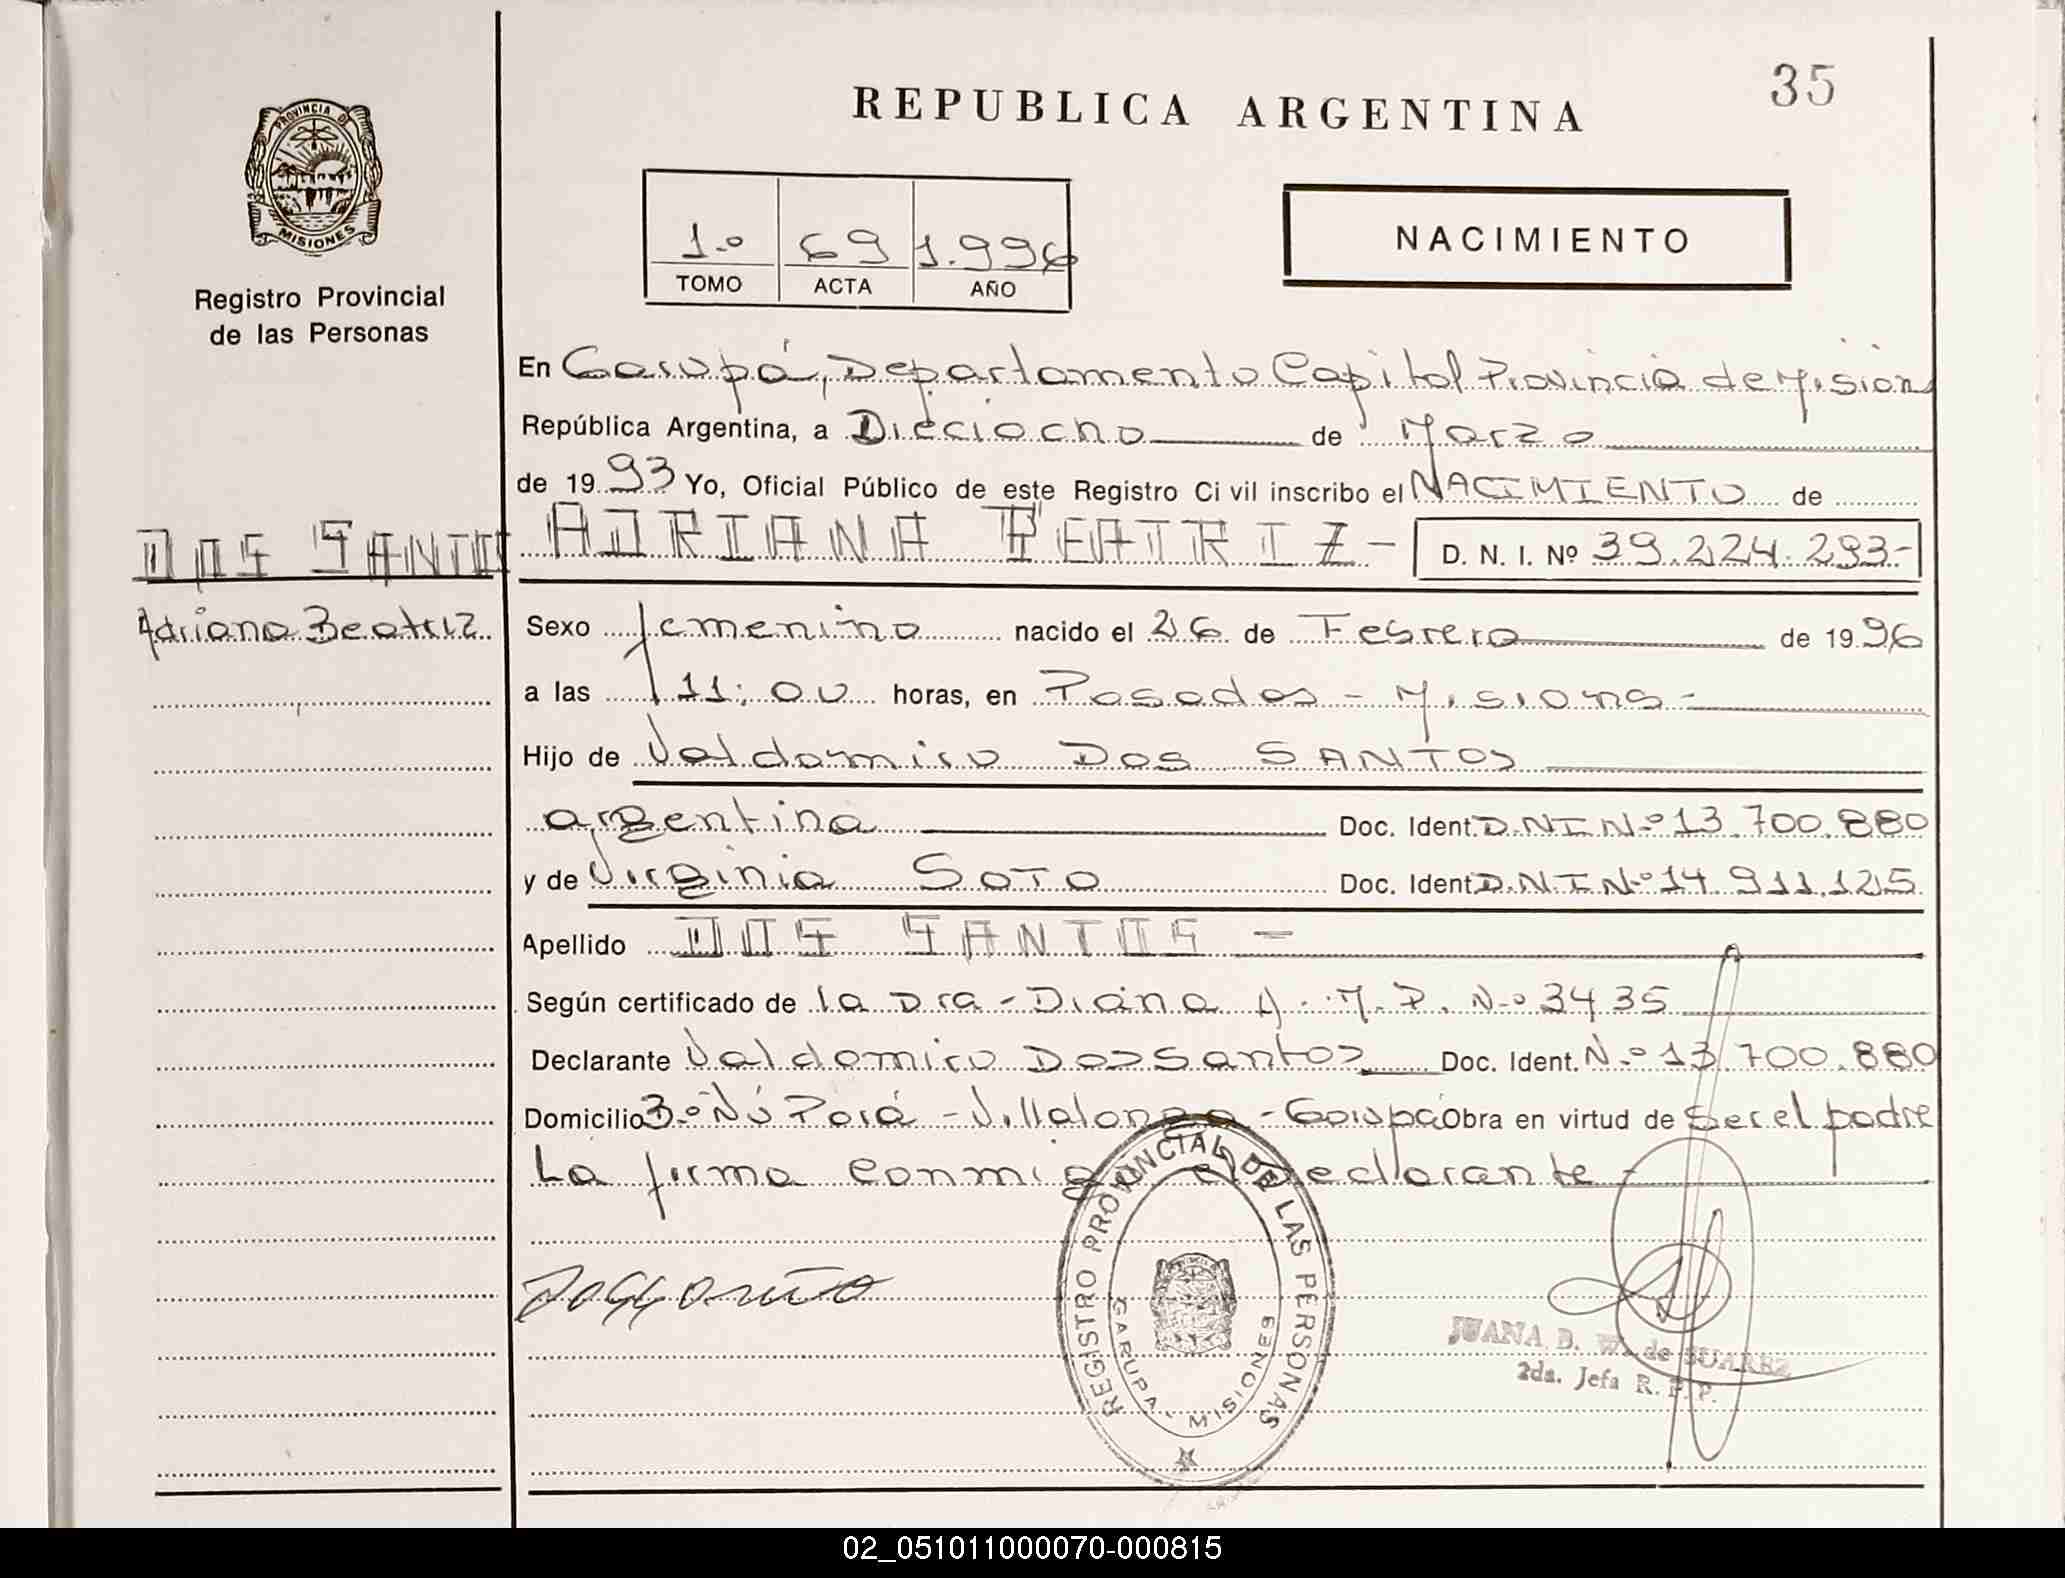 35
REPUBLICA ARGENTINA
PROVINCIA DE
MISIONES
Registro Provincial
de las Personas
1º 69 1.996
TOMO ACTA AÑO
NACIMIENTO
En Garupá, Departamento Capital Provincia de Mision
República Argentina, a Dieciocho de Marzo
de 1993 Yo, Oficial Público de este Registro Civil inscribo el NACIMIENTO de
DOS SANTOS ADRIANA BEATRIZ - D. N. I. Nº 39.224.293-
Adriana Beatriz
Sexo femenino nacido el 26 de Febrero de 1996
a las 11:00 horas, en Posadas - Misions -
Hijo de Valdomiro DOS SANTOS
argentina Doc. Ident. D.N.I Nº 13.700.880
y de Virginia SOTO Doc. Ident. D.N.I Nº 14.911.125
Apellido DOS SANTOS -
Según certificado de la Dra - Diana A. M.P. Nº 3435
Declarante Valdomiro Dos Santos Doc. Ident. Nº 13.700.880
Domicilio Bº Ñú Porá - Villalonga - Garupá Obra en virtud de ser el padre
La firma conmigo el declarante -
REGISTRO PROVINCIAL DE LAS PERSONAS
GARUPA - MISIONES
JUANA B. W. de SUAREZ
2da. Jefa R. P. P.
02_051011000070-000815